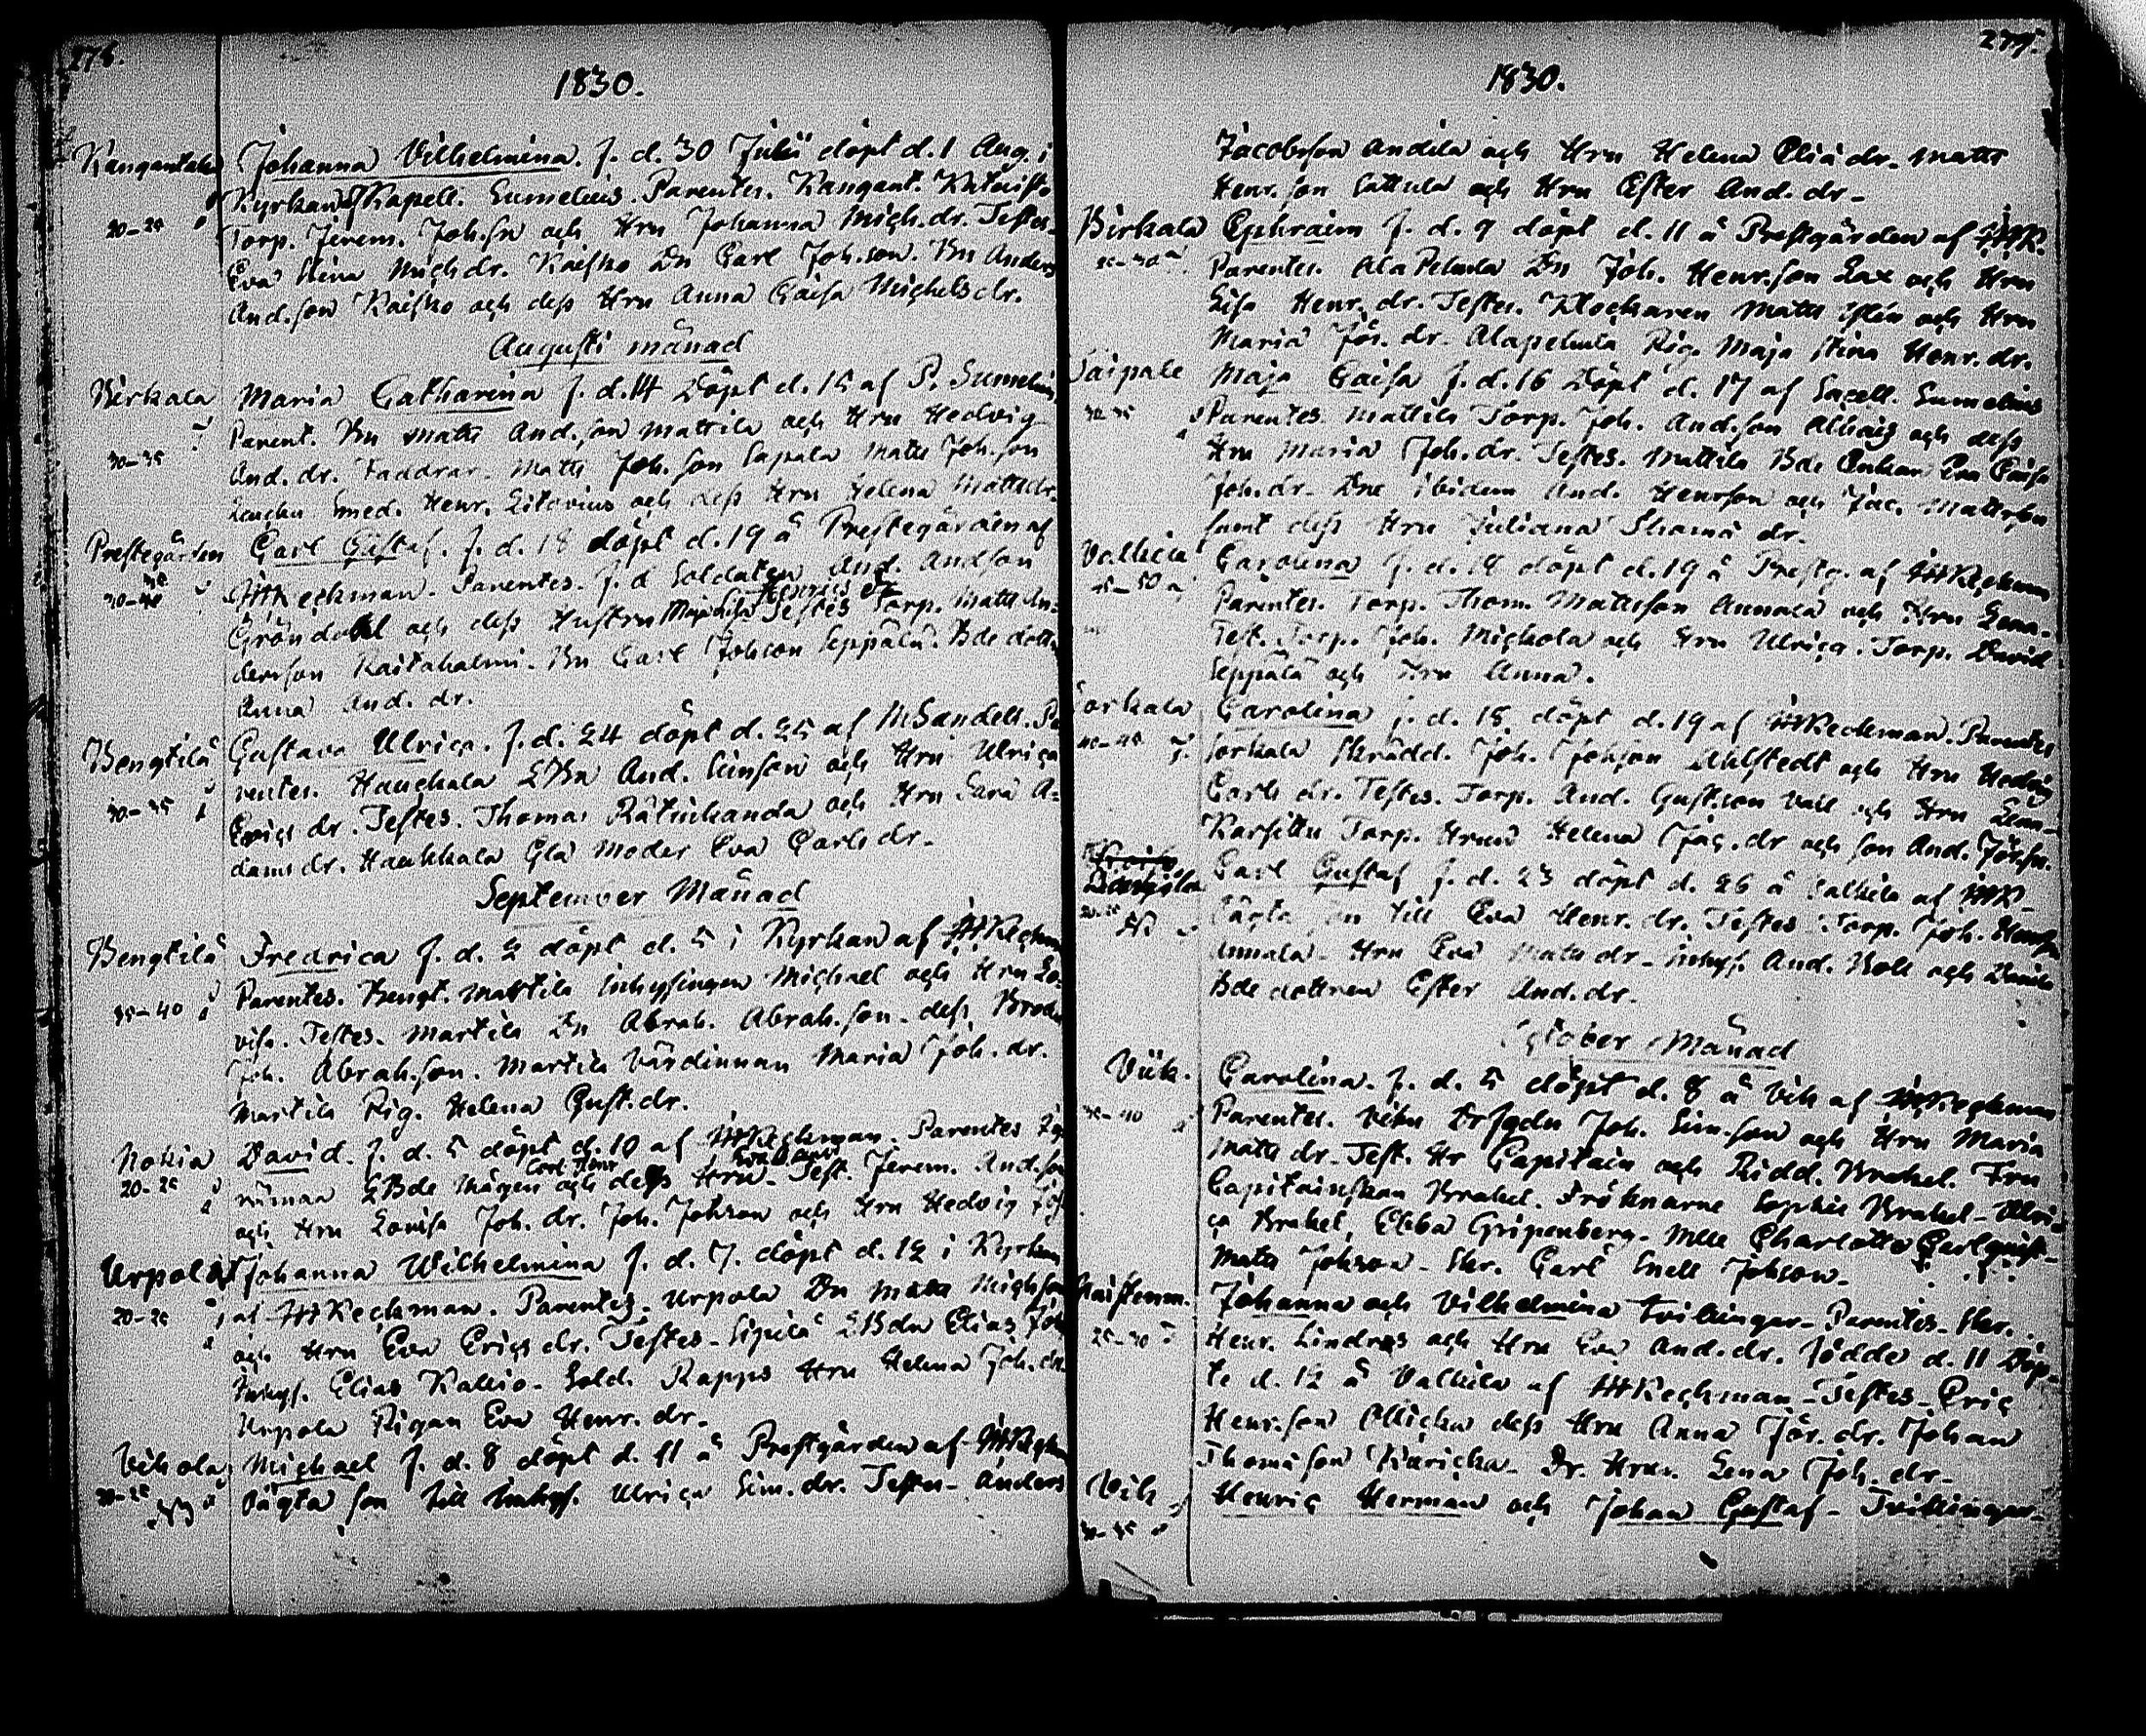 276.
1830.
Kangantaka Johanna Vilhelmina. f. d. 30 Julii döpt d. 1 Aug. i
Kyrkan af Kapell. Sumelius. Parentes. Kangant. Knäisto
20-25 Torp. Jerem. Joh.sn och Hru Johanna Mich.dr. Testes.
Eva Stina Mich.dr. Kaisko Dn Carl Joh.son. Bn Anders
And.son Kaisko och dess Hru Anna Caisa Michelsdr.
Augusti månad
Birkala Maria Catharina f. d. 14 Döpt d. 15 af P. Sumelius
Parent. Bn Matts And.son Mattila och Hru Hedvig
30-35 And. dr. Faddrar. Matts Joh.son Sapala Matts Joh.son
Smed. Henr. Litovius och dess Hru Helena Mattsdr.
Prestegården Carl Gustaf. f. d. 18 döpt d. 19 å Prestegården af
30-40 HReckman. Parentes. f. d Soldaten And. Andson
Gröndahl och dess Hustru Maja Lisa Testes Torp. Matts An-
derson Raitahalmi. Bn Carl Johson Seppälä. Bde dottr.
Anna And. dr.
Bengtilä Gustava Ulrica. f. d. 24 döpt d. 25 af MSandell. Pa
rentes. Hauckala And. Simson och Hru Ulrica
30-35 Erics dr. Testes. Thomas Rätickanda och Hru Sara A-
dams dr. Haukkala Gla Moder Eva Carls dr.
September Månad
Bengtilä Fredrica f. d. 2 döpt d. 5 i Kyrkan af HReckman
Parentes. Bengt. Martila Inhysingen Michael och Hru Lo-
35-40 visa. Testes. Martila Dn Abrah. Abrah.son. dess Broder
Joh. Abrah.son. Martila Värdinnan Maria Joh. dr.
Martila Pig. Helena Gust.dr.
Nokia David. f. d. 5 döpt d. 10 af HReckman. Parentes
20-25 Mågen Carl Henr och dess Hru. Test. Jerem. And.son
och Hru Lovisa Joh. dr. Joh. Johson och Hru Hedvig
Urpola Johanna Wilhelmina f. d. 7. döpt d. 12 i Kyrkan
20-25 af HReckman. Parentes. Urpola Dn Matts Michson
och Hru Eva Erics dr. Testes. Sipilä Elias Joh
Inhys. Elias Kallio. Sold. Rapps Hru Helena Joh. dr.
Urpola Pigan Eva Henr. dr.
Vihola Michael f. d. 8 döpt d. 11 å Prestgården af HReckm
20-25 oägta son till Inhys. Ulrica Sim. dr. Testes. Anders
277.
1830.
Jacobson Andila och Hru Helena Eliä dr. Matts
Henr. son Lattula och Hru Ester And. dr.
Birkala Ephraim f. d. 9 döpt d. 11 å Prestgården af HR.
Parentes. Ala Pelmla Dn Joh. Henr.son Lax och Hru
Lisa Henr. dr. Testes. Klockaren Matts och Hru
Maria Jör. dr. Alapelmla Pig. Maja Stina Henr. dr.
Saipale Maja Caisa f. d. 16 Döpt d. 17 af Sacell. Sumelius
30-35 Parentes. Mattila Torp. Joh. And.son och dess
Hru Maria Joh. dr. Testes. Mattila Bde Enkan Eva Caisa
Joh.dr. Dne ibidem And. Henrson och Jac. Mattsson
samt dess Hru Juliana Thomä dr.
Vallila Carolina f. d. 18 döpt d. 19 å Prestg. af HReckman
45-50 Parentes. Torp. Thom. Mattsson Annala och Hru Lena.
Test. Torp. Joh. Michola och Hru Ulrica. Torp. David
Seppälä och Hru Anna.
Sorkala Carolina f. d. 18 döpt d. 19 af HReckman. Parentes
40-45 Sorkala Skrädd. Joh. Johson Ahlstedt och Hru Hedvig
Carls dr. Testes. Torp. And. Gust.son Vall och Hru Lena.
Torp. Hrun Helena Jac. dr och son And. Johsn.
Carl Gustaf f. d. 23 döpt d. 26 å Vallila af HR.
oägta son till Eva Henr. dr. Testes Torp. Joh. Henrson
Annala. Hru Eva Matts dr. Inhys. And. Boll och
Bde dottren Ester And. dr.
October Månad
Viik. Carolina. f. d. 5 döpt d. 8 å Vik af HReckman
Parentes. Joh. Sim.son och Hru Maria
Matts dr. Test. Hr Capitain och Ridd. Brakel. Fru
Capitainskan Brakel. Fröknarne Sophie Brakel. Ulri-
ca Brakel, Ebba Gripenberg. Mlle Charlotte Carlquist.
Matts Johson. Skr. Carl Snell Johson.
Johanna och Vilhelmina Tvillingar. Parentes. Skr.
25-30 Henr. Lindros och Hru Eva And.dr. födde d. 11 Döp-
te d. 12 å Vallila af HReckman. Testes. Eric
Henr.son Ollicka dess Hru Anna Jör. dr. Johan
Thomäson Dr. Hru. Lena Joh. dr.
Vik Henric Herman och Johan Gustaf. Tvillingar.